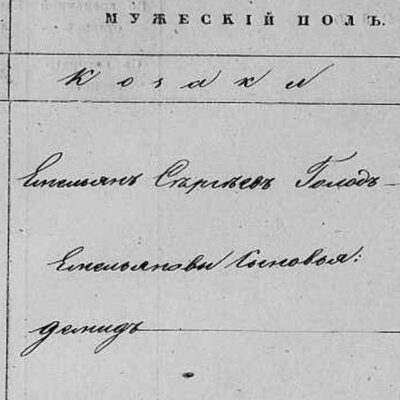 МУЖЕСКІЙ ПОЛЪ.
Козаки
Емельянъ Сергѣевъ Голодъ
Емельяновы сыновья:
Демидъ